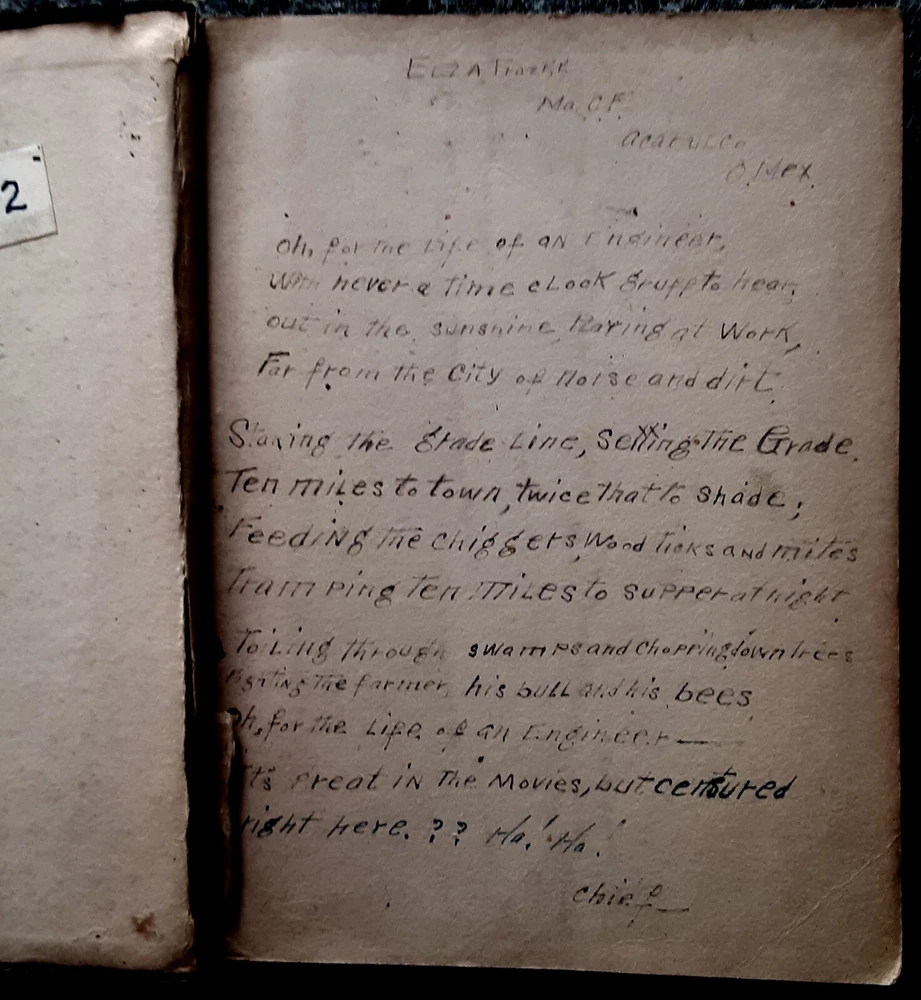 2
Ma. C.F.
Mex.
Oh, for the Life of an Engineer,
With never a time cLock gruff to hear,
out in the sunshine, at Work,
Far from the City of Noise and dirt.
Staking the grade Line, Setting The Grade.
Ten miLes to town, twice that to shade;
Feeding the chiggers, Wood Ticks and mites
Tramping Ten MiLes to supper at night
ToiLing through swamps and Chopping down trees
Fighting The farmer, his buLL and his bees
Oh, for the Life of an Engineer —
It's great in The Movies, but centured
right here. ?? Ha! Ha!
Chief